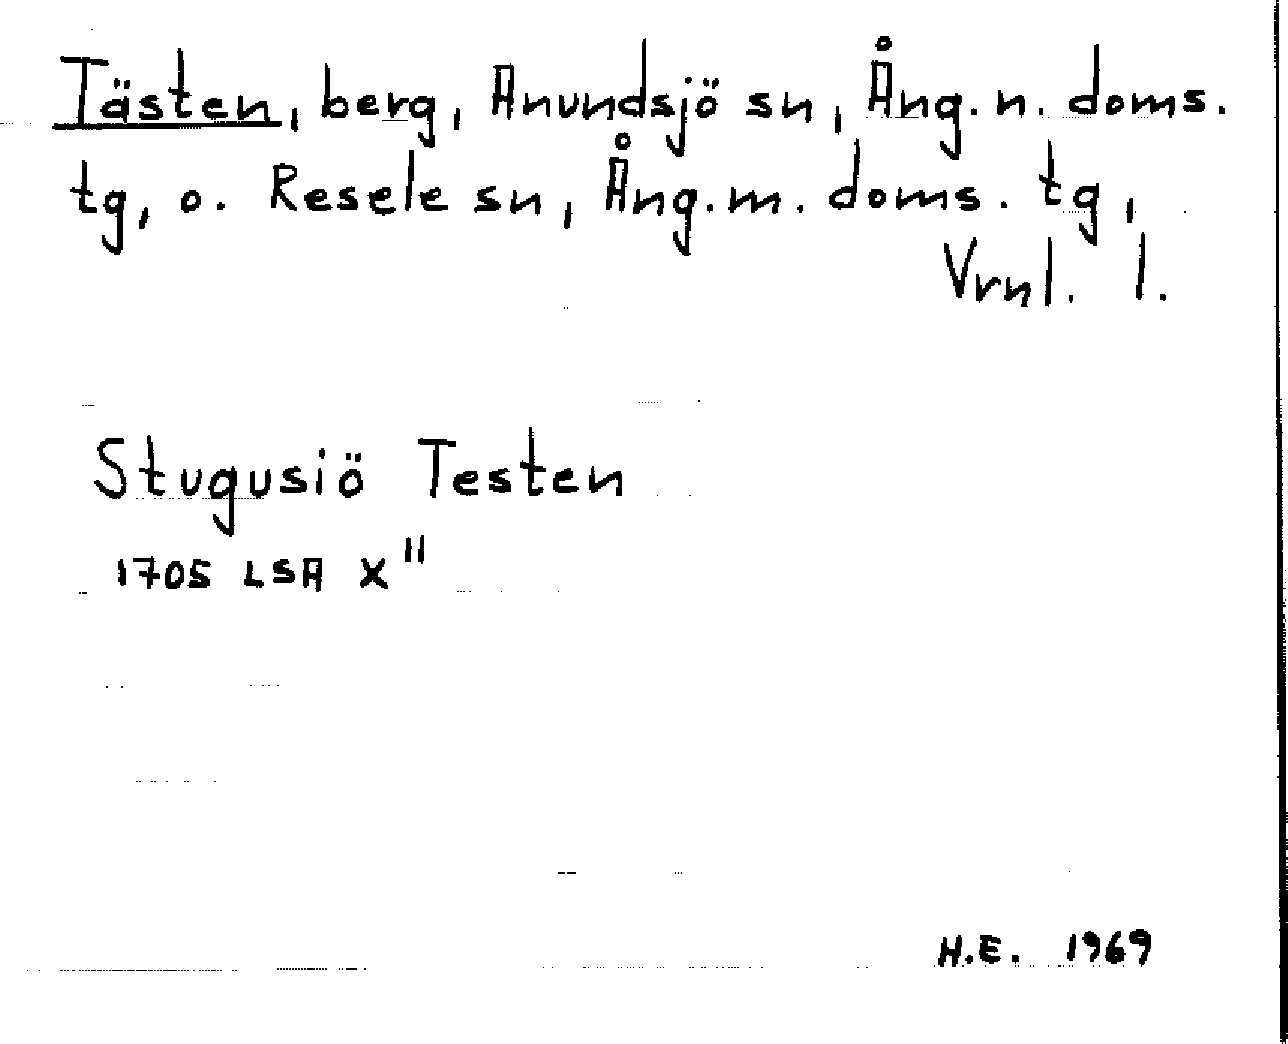 Tästen, berg, Anundsjö sn, Ång. n. doms.
tg, o. Resele sn, Ång. m. doms. tg,
Vrnl. l.
Stugusiö Testen
1705 LSA X"
H.E. 1969